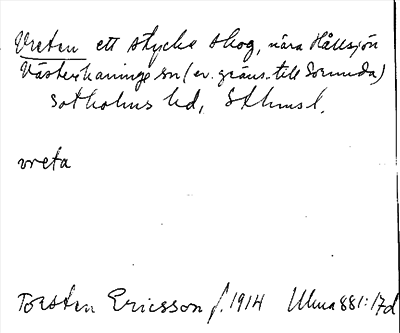 Vreten ett stycke skog, nära Hållsjön
Västerhaninge sn (ev. gräns till Sorunda)
Sotholms hd, Sthmsl.
vreta
Torsten Ericsson f. 1914 Uma 881:17d